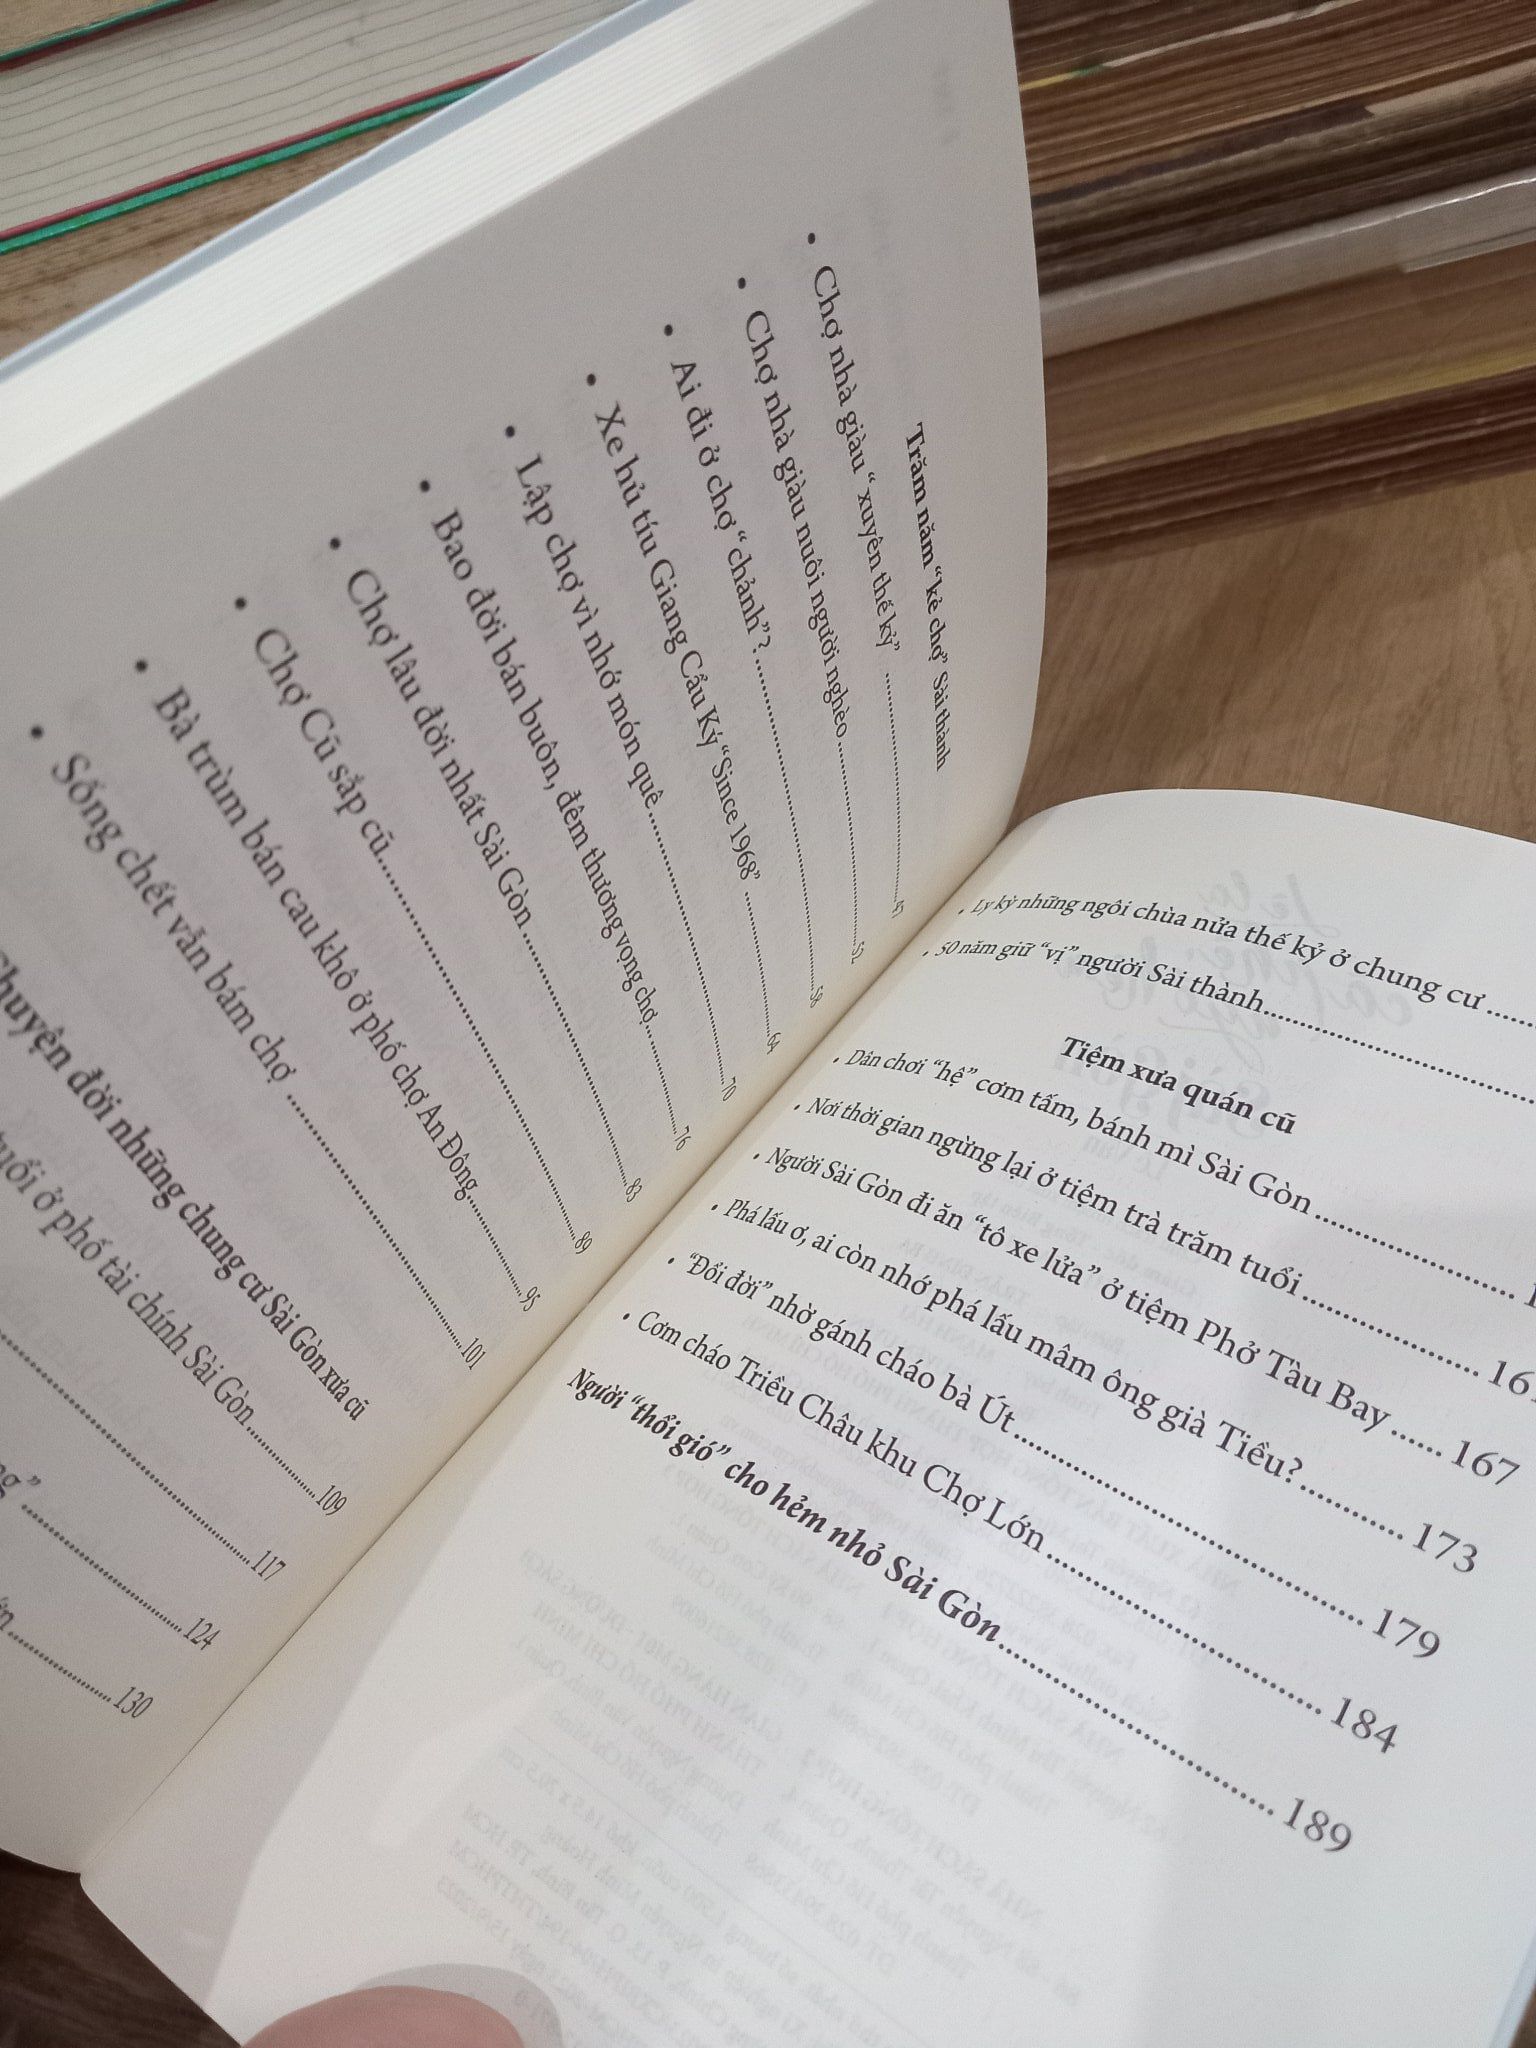 Trăm năm “kẻ chợ” Sài thành
• Chợ nhà giàu “xuyên thế kỷ” ........ 45
• Chợ nhà giàu nuôi người nghèo ........ 52
• Ai đi ở chợ “chảnh”? ........ 58
• Xe hủ tíu Giang Cẩu Ký “Since 1968” ........ 64
• Lập chợ vì nhớ món quê ........ 70
• Bao đời bán buôn, đêm thương vọng chợ ........ 76
• Chợ lâu đời nhất Sài Gòn ........ 83
• Chợ Cũ sắp cũ ........ 89
• Bà trùm bán cau khô ở phố chợ An Đông ........ 95
• Sống chết vẫn bám chợ ........ 101
Chuyện đời những chung cư Sài Gòn xưa cũ
tuổi ở phố tài chính Sài Gòn ........ 109
........ 117
” ........ 124
........ 130
• Ly kỳ những ngôi chùa nửa thế kỷ ở chung cư ........
• 50 năm giữ “vị” người Sài thành ........
Tiệm xưa quán cũ
• Dân chơi “hệ” cơm tấm, bánh mì Sài Gòn ........
• Nơi thời gian ngừng lại ở tiệm trà trăm tuổi ........
• Người Sài Gòn đi ăn “tô xe lửa” ở tiệm Phở Tàu Bay ...... 167
• Phá lấu ơ, ai còn nhớ phá lấu mâm ông già Tiều? ........ 173
• “Đổi đời” nhờ gánh cháo bà Út ........ 179
• Cơm cháo Triều Châu khu Chợ Lớn ........ 184
Người “thổi gió” cho hẻm nhỏ Sài Gòn ........ 189